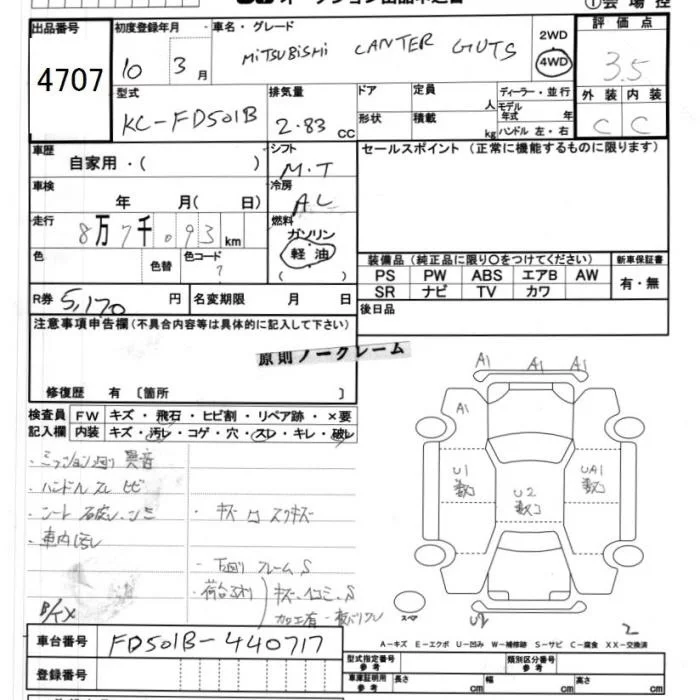 出品番号
初度登録年月
車名・グレード
①会場控
4707
10 3月
MITSUBISHI CANTER GUTS
2WD
4WD
評価点
3.5
型式
KC-FD501B
排気量
2.83 CC
ドア
定員
人
ディーラー・並行
モデル年式 年
ハンドル 左・右
形状
積載
kg
外装 内装
C C
車歴
自家用・( )
シフト
M.T
セールスポイント (正常に機能するものに限ります)
車検
年 月( 日)
冷房
AC
走行
8万7千093km
燃料
ガソリン
軽油
( )
色
色替
色コード
?
装備品 (純正品に限り○をつけてください)
新車保証書
PS PW ABS エアB AW
SR ナビ TV カワ
有・無
R券 5,170円
名変期限 月 日
後日品
注意事項申告欄(不具合内容等は具体的に記入して下さい)
原則ノークレーム
修復歴 有 〔箇所 〕
検査員記入欄
FW キズ・飛石・ヒビ割・リペア跡・×要
内装 キズ・汚レ・コゲ・穴・スレ・キレ・破レ
・ミッション廻り異音
・ハンドルスレ ヒビ
・シート
・車内汚レ
・キズ
・下廻りフレームS
・荷台
A1 A1 A1
A1
U1
U2
UA1
スペア
2
車台番号
FD501B-440717
登録番号
A-キズ E-エクボ U-凹み W-補修跡 S-サビ C-腐食 XX-交換済
型式指定番号 参考
類別区分番号 参考
車庫証明用 参考
長さ cm
幅 cm
高さ cm